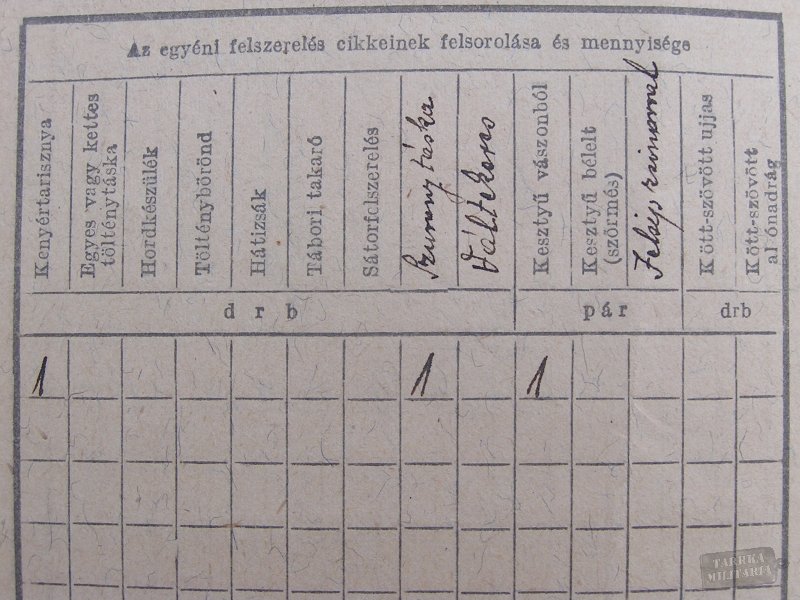 Az egyéni felszerelés cikkeinek felsorolása és mennyisége
Kenyértarisznya
Egyes vagy kettes
tölténytáska
Hordkészülék
Tölténybörönd
Hátizsák
Tábori takaró
Sátorfelszerelés
Szuronytáska
Kesztyű vászonból
Kesztyű bélelt
(szőrmés)
Kött-szövött ujjas
Kött-szövött
alsónadrág
drb
pár
drb
1 1 1
TARRKA
MILITARIA